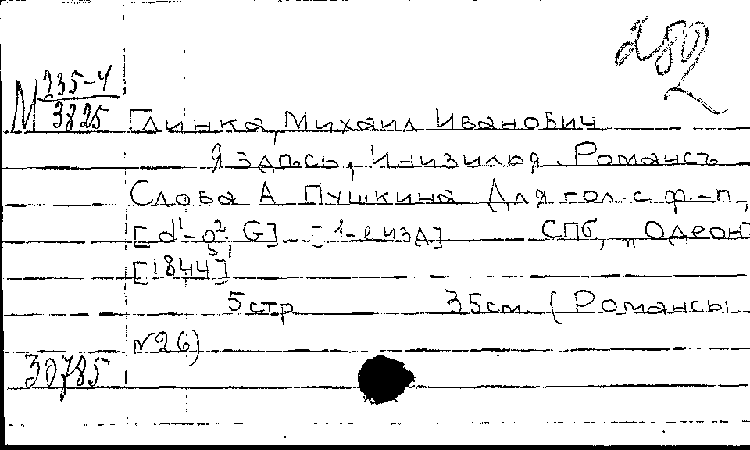 282
М 235-4
3825
Глинка, Михаил Иванович
Я здѣсь, Инизилья. Романсъ
Слова А Пушкина Для гол. с ф-п,
[d¹-g² G]. [1-е изд] СПб, "Одеон
[1844]
5 стр 35 см. (Романсы
№26)
30785